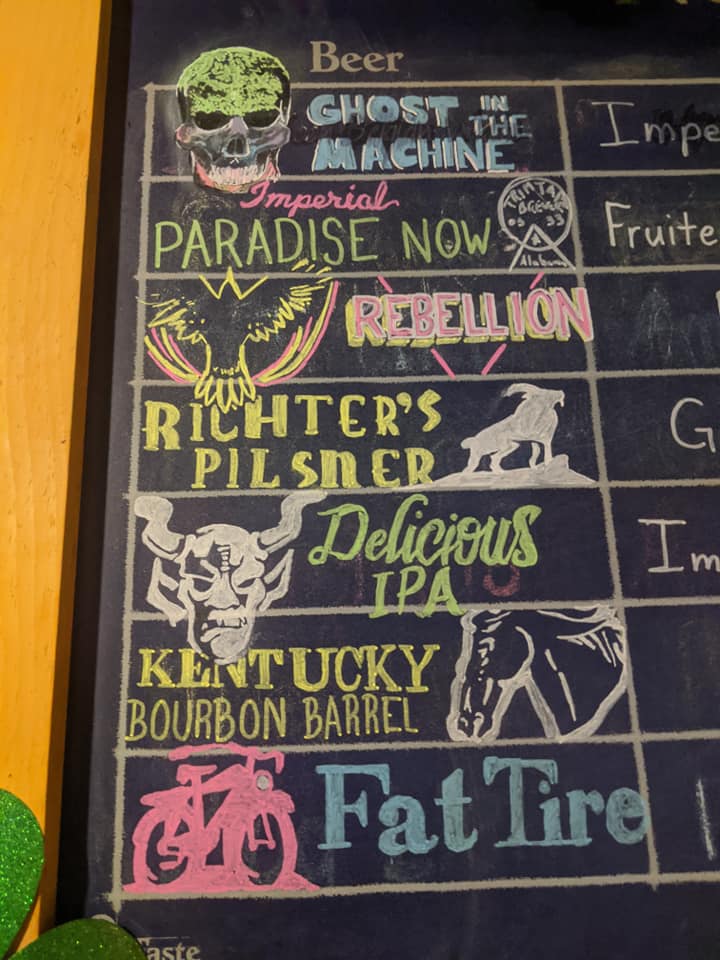 Beer
GHOST IN THE
MACHINE
Impe
Imperial
PARADISE NOW
TRIMTAB
Alabama
Fruite
REBELLION
RICHTER'S
PILSNER
G
Delicious
IPA
Im
KENTUCKY
BOURBON BARREL
Fat Tire
Taste